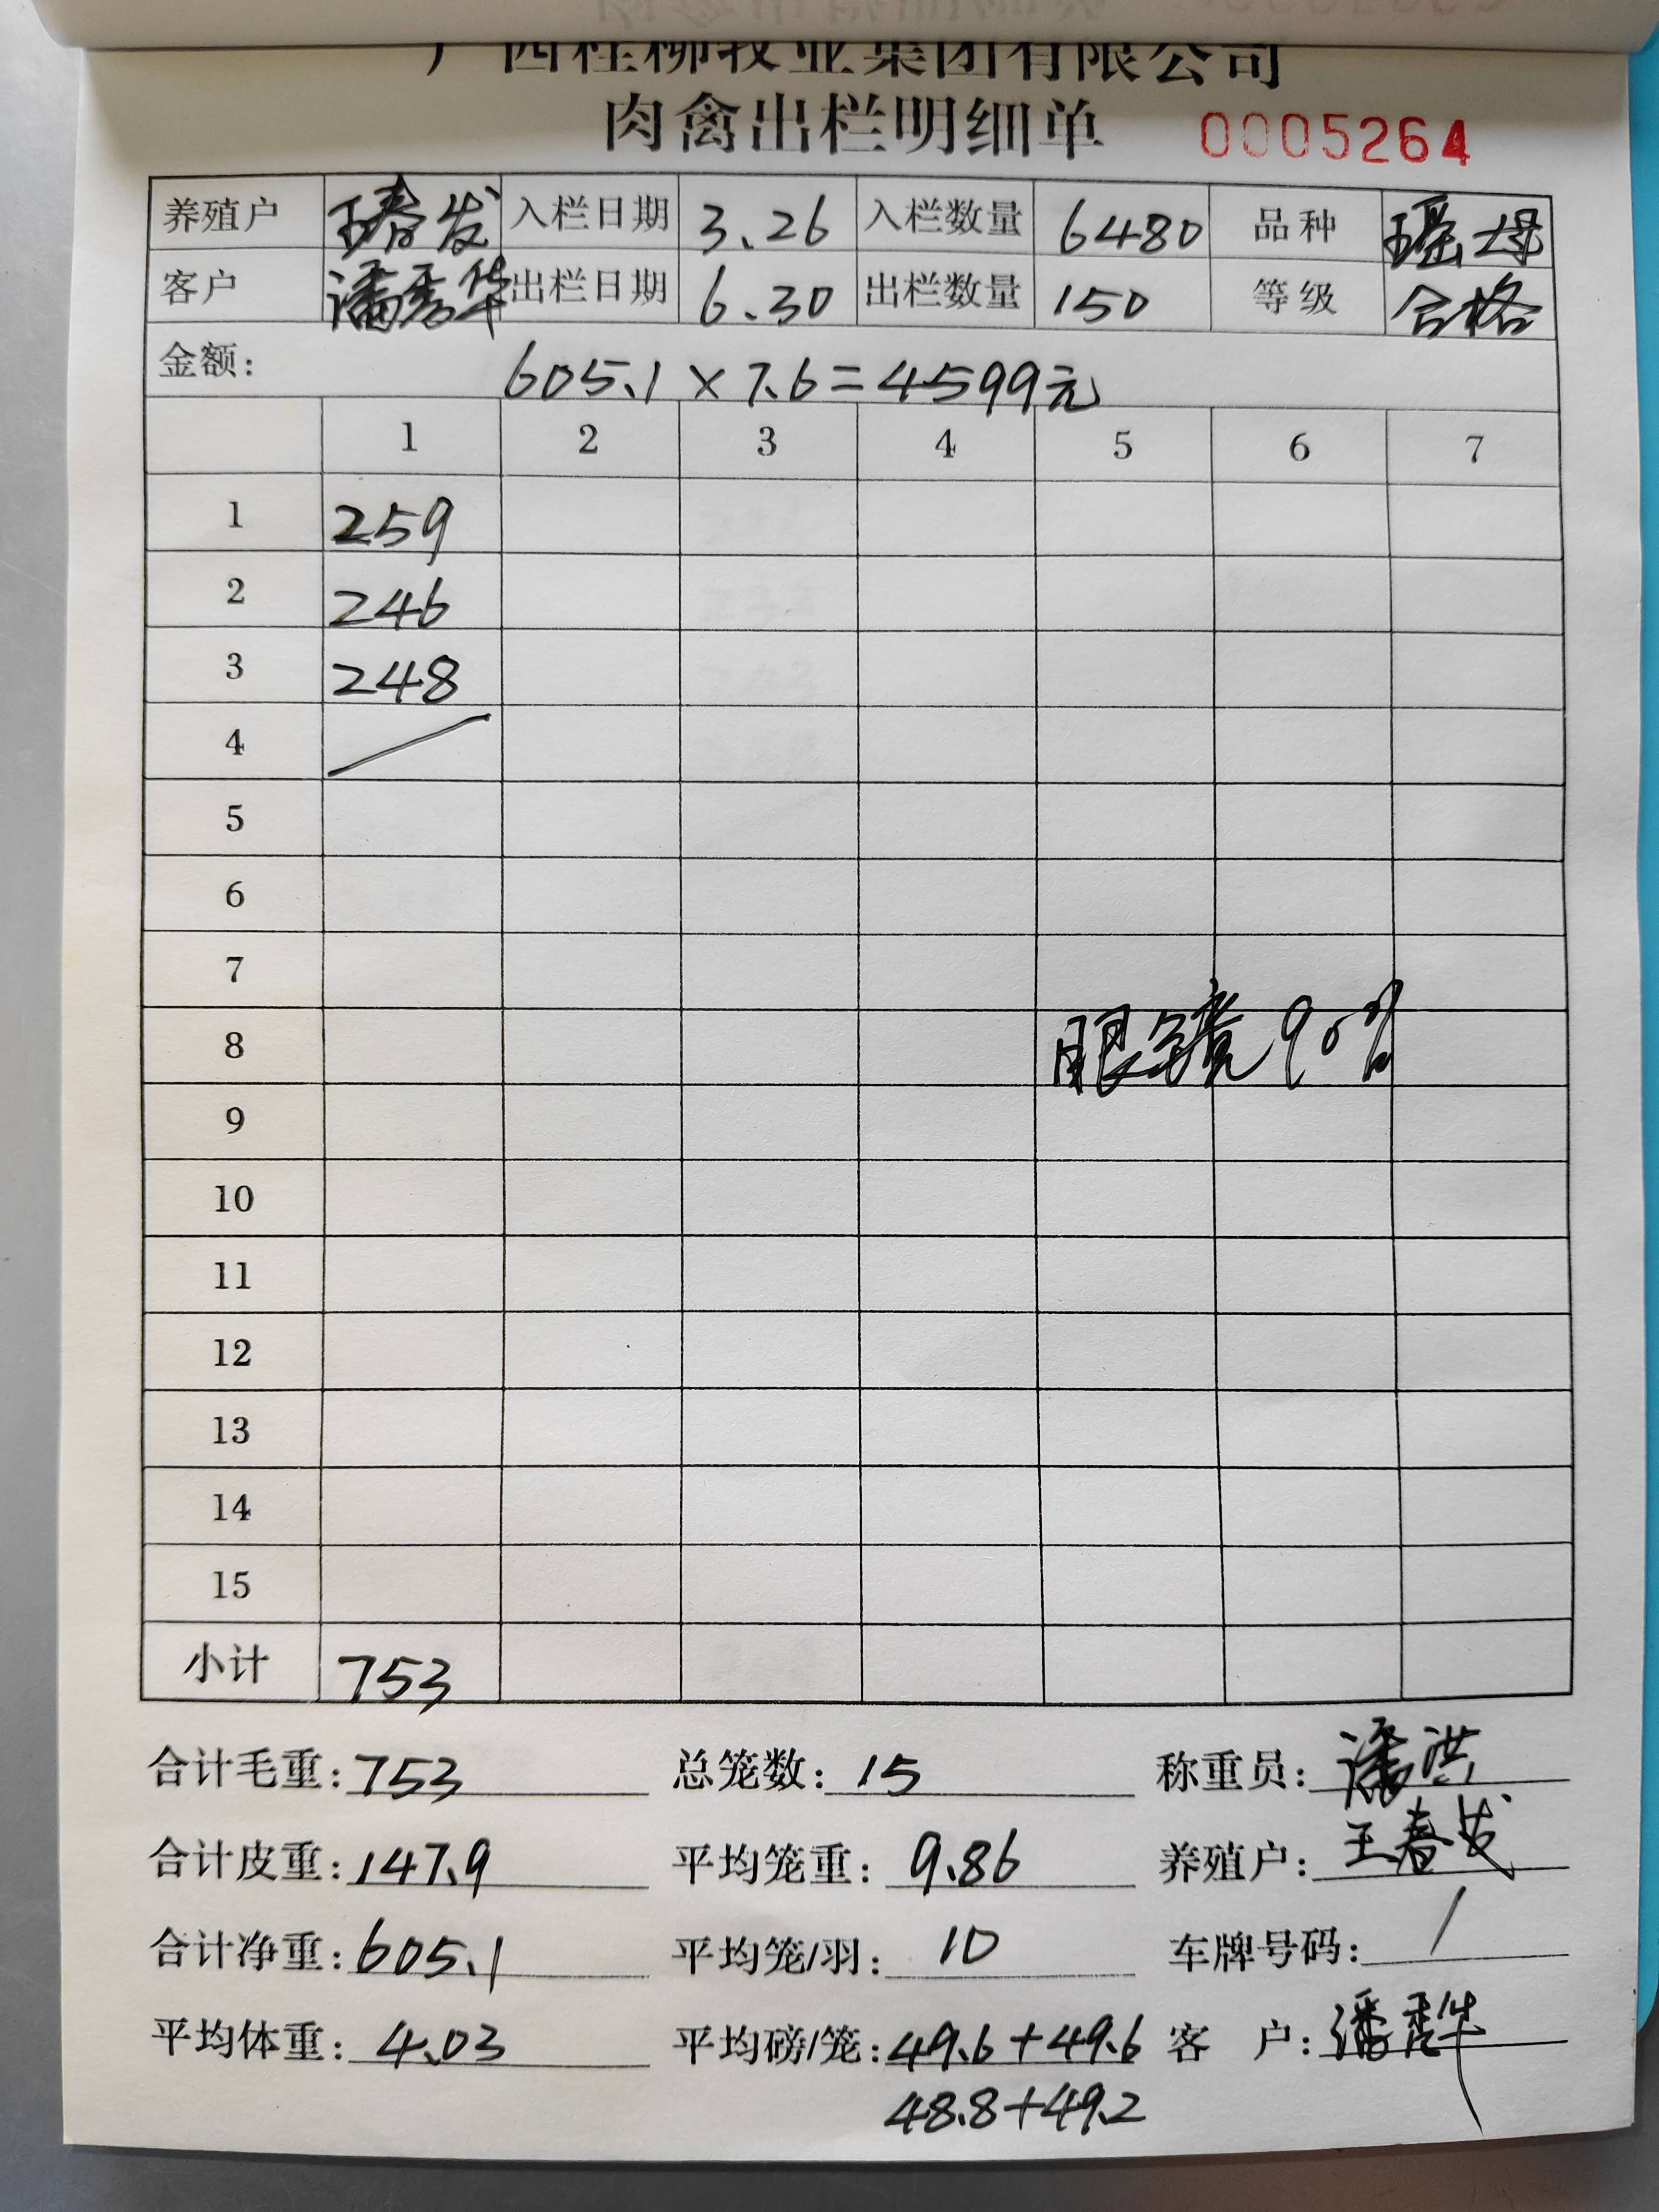 广西桂柳牧业集团有限公司
肉禽出栏明细单 0005264
养殖户 王春发 入栏日期 3.26 入栏数量 6480 品种 瑶母
客户 潘秀华 出栏日期 6.30 出栏数量 150 等级 合格
金额: 605.1×7.6=4599元
1 2 3 4 5 6 7
1 259
2 246
3 248
4
5
6
7
8 眼镜90%
9
10
11
12
13
14
15
小计 753
合计毛重:753 总笼数:15 称重员:潘洪
合计皮重:147.9 平均笼重:9.86 养殖户:王春发
合计净重:605.1 平均笼/羽:10 车牌号码:/
平均体重:4.03 平均磅/笼:49.6+49.6 客 户:潘秀华
48.8+49.2